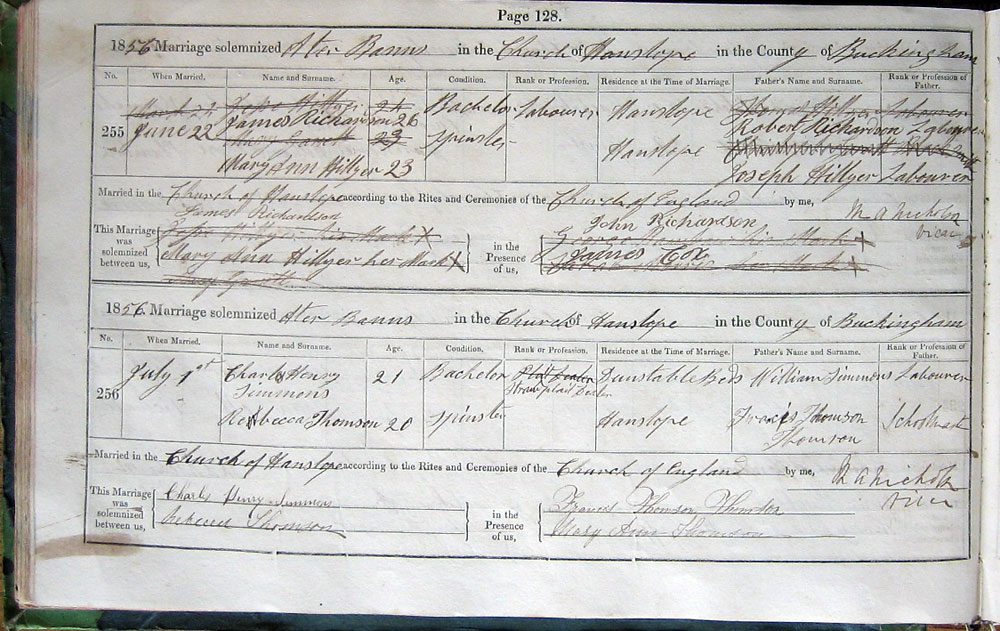 Page 128.
1856 Marriage solemnized After Banns in the Church of Hanslope in the County of Buckingham
No. When Married. Name and Surname. Age. Condition. Rank or Profession. Residence at the Time of Marriage. Father's Name and Surname. Rank or Profession of Father.
March 22 Hillyer 24 Bachelor Labourer Hanslope Hillyer Labourer
255 June 22 James Richardson 26 Robert Richardson Labourer
Mary Garrett 23 Spinster Hanslope
Mary Ann Hillyer 23 Joseph Hillyer Labourer
Married in the Church of Hanslope according to the Rites and Ceremonies of the Church of England by me, M A Nicholson
Vicar
James Richardson John Richardson
This Marriage was solemnized between us, Hillyer his Mark X in the Presence of us, George his Mark X
Mary Ann Hillyer her Mark X James Cox
her Mark X
1856 Marriage solemnized After Banns in the Church of Hanslope in the County of Buckingham
No. When Married. Name and Surname. Age. Condition. Rank or Profession. Residence at the Time of Marriage. Father's Name and Surname. Rank or Profession of Father.
256 July 1st Charles Henry Simmons 21 Bachelor Plat Dealer Straw plait Dealer Dunstable Beds William Simmons Labourer
Rebbecca Thomson 20 Spinster Hanslope Francis Thomson Thomson
Married in the Church of Hanslope according to the Rites and Ceremonies of the Church of England by me, M A Nicholson
Vicar
This Marriage was solemnized between us, Charles Henry Simmons in the Presence of us, Francis Thomson Thomson
Rebecca Thomson Mary Ann Thomson